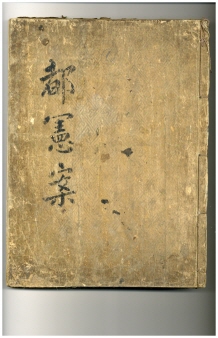 都憲案